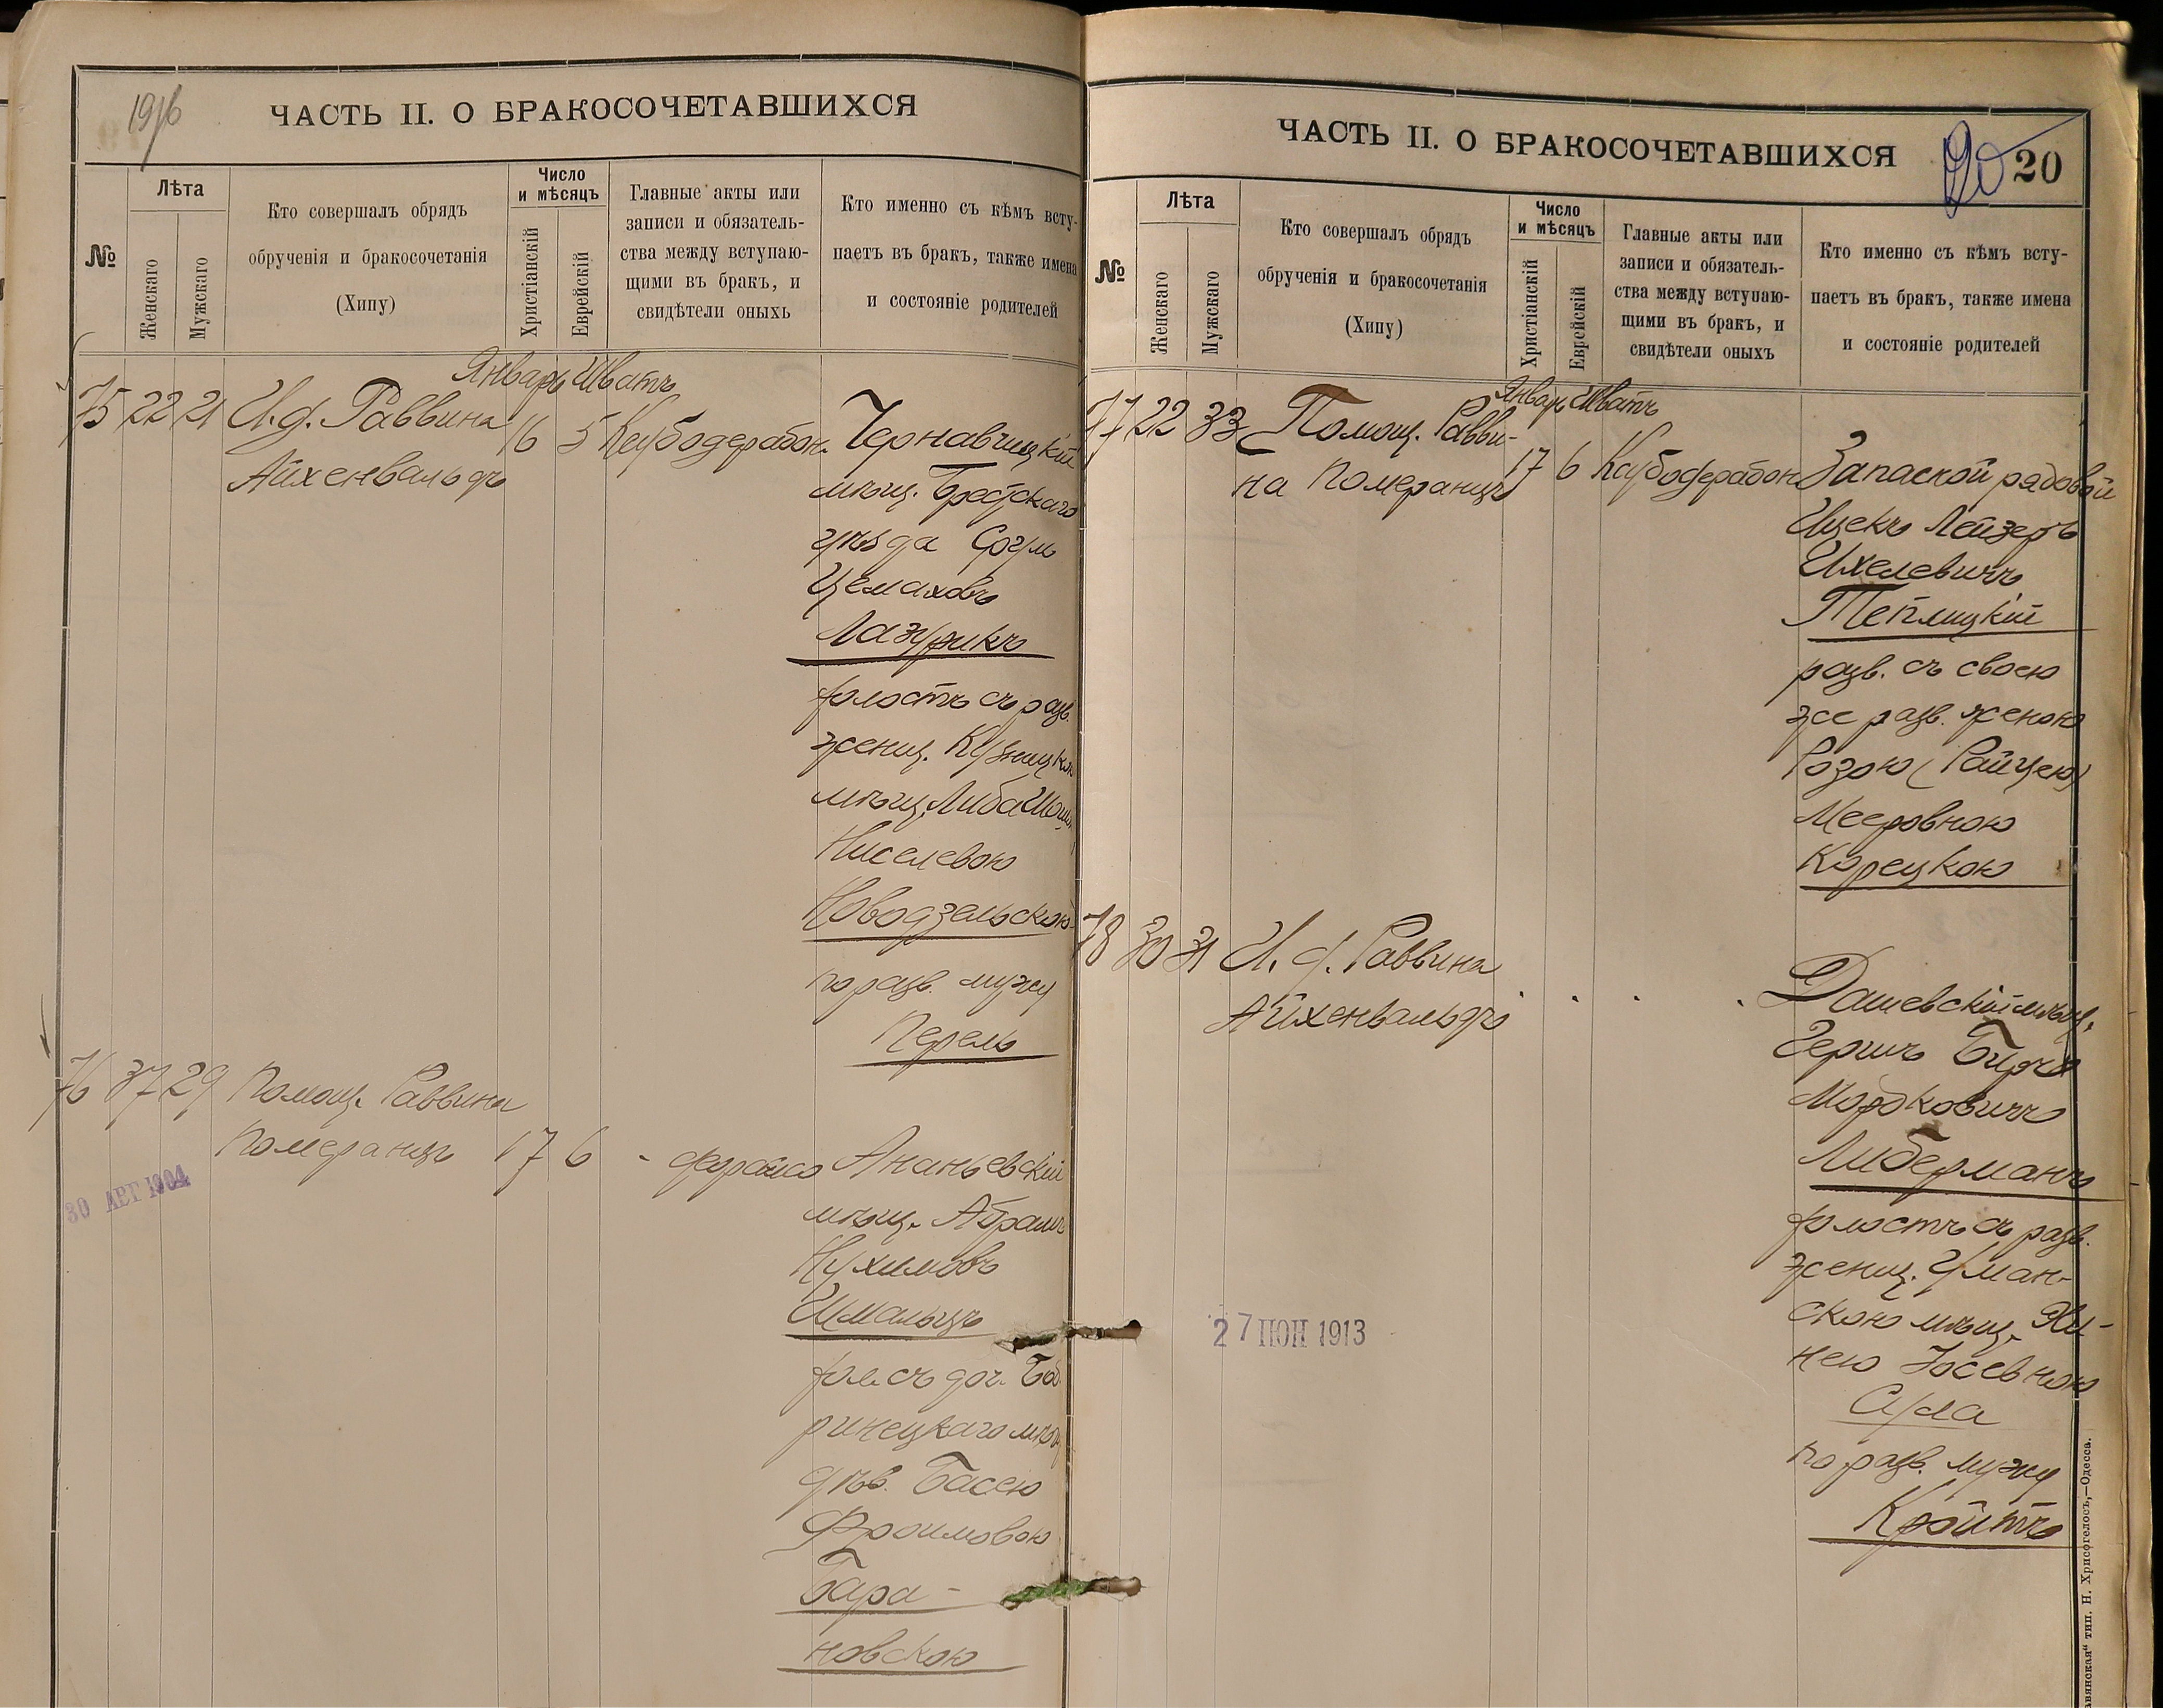 19/6
ЧАСТЬ II. О БРАКОСОЧЕТАВШИХСЯ
№
Лѣта
Женскаго
Мужскаго
Кто совершалъ обрядъ
обрученія и бракосочетанія
(Хипу)
Число
и мѣсяцъ
Христіанскій
Еврейскій
Главные акты или
записи и обязатель-
ства между вступаю-
щими въ бракъ, и
свидѣтели оныхъ
Кто именно съ кѣмъ всту-
паетъ въ бракъ, также имена
и состояніе родителей
Январь Шватъ
75 22 21 И. д. Раввина 16 5
Айхенвальдъ
Чернавчицкій
мѣщ. Брестскаго
уѣзда Сруль
Цемаховъ
Лазрикъ
холостъ съ разв.
женщ.
мѣщ. Либа
Ниселевою
Новодзельскою
по разв. мужу
Перель
76 37 29 Помощ. Раввина
Померанцъ 17 6
30 АВГ 1904
Ананьевскій
мѣщ. Абрамъ
Нухимовъ
Шмальцъ
хол. съ доч. Боб
ринецкаго мѣщ
дѣв. Басею
Фроимовою
Бара-
новскою
ЧАСТЬ II. О БРАКОСОЧЕТАВШИХСЯ
20 20
№
Лѣта
Женскаго
Мужскаго
Кто совершалъ обрядъ
обрученія и бракосочетанія
(Хипу)
Число
и мѣсяцъ
Христіанскій
Еврейскій
Главные акты или
записи и обязатель-
ства между вступаю-
щими въ бракъ, и
свидѣтели оныхъ
Кто именно съ кѣмъ всту-
паетъ въ бракъ, также имена
и состояніе родителей
Январь Шватъ
77 22 33 Помощ. Равви-
на Померанцъ 17 6
Запаской рядовой
Ицекъ Лейзеръ
Ихелевичъ
Теплицкій
разв. съ своею
же разв. женою
Розою (Райцею)
Мееровною
Корецкою
78 30 31 И. д. Раввина
Айхенвальдъ
Дашевскій мѣщ.
Гершъ Бирхъ
Мордковичъ
Либерманъ
холостъ съ разв.
женщ. Уман-
скою мѣщ. Хи-
нею Іосевною
Сула
по разв. мужу
Кройтъ
27 ІЮН 1913
тип. Н. Хрисогелосъ,—Одесса.